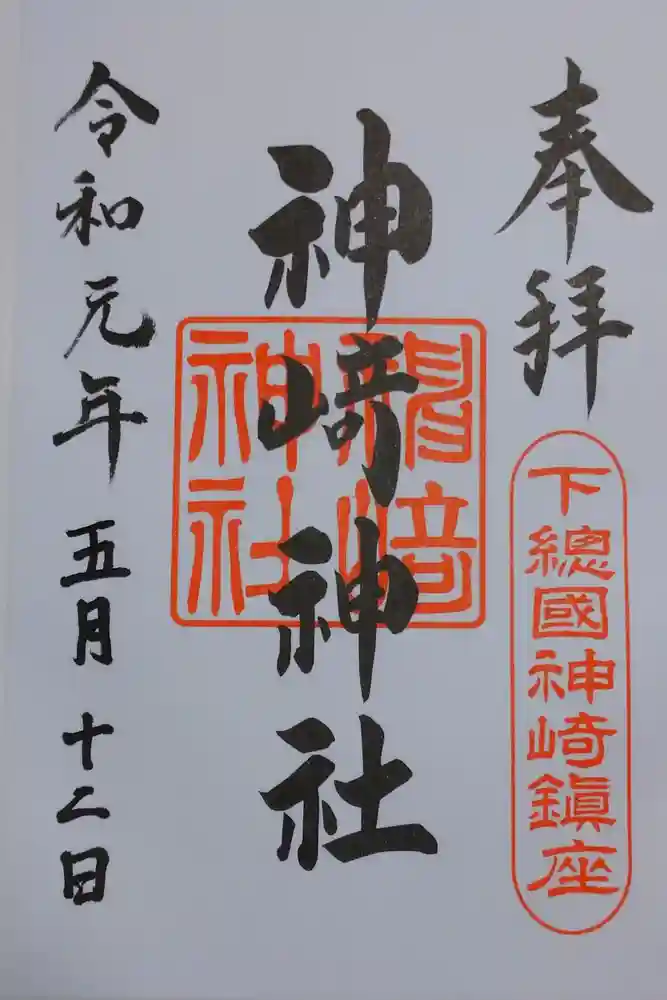 奉拝
下總國神崎鎮座
神崎神社
神崎神社
令和元年 五月 十二日